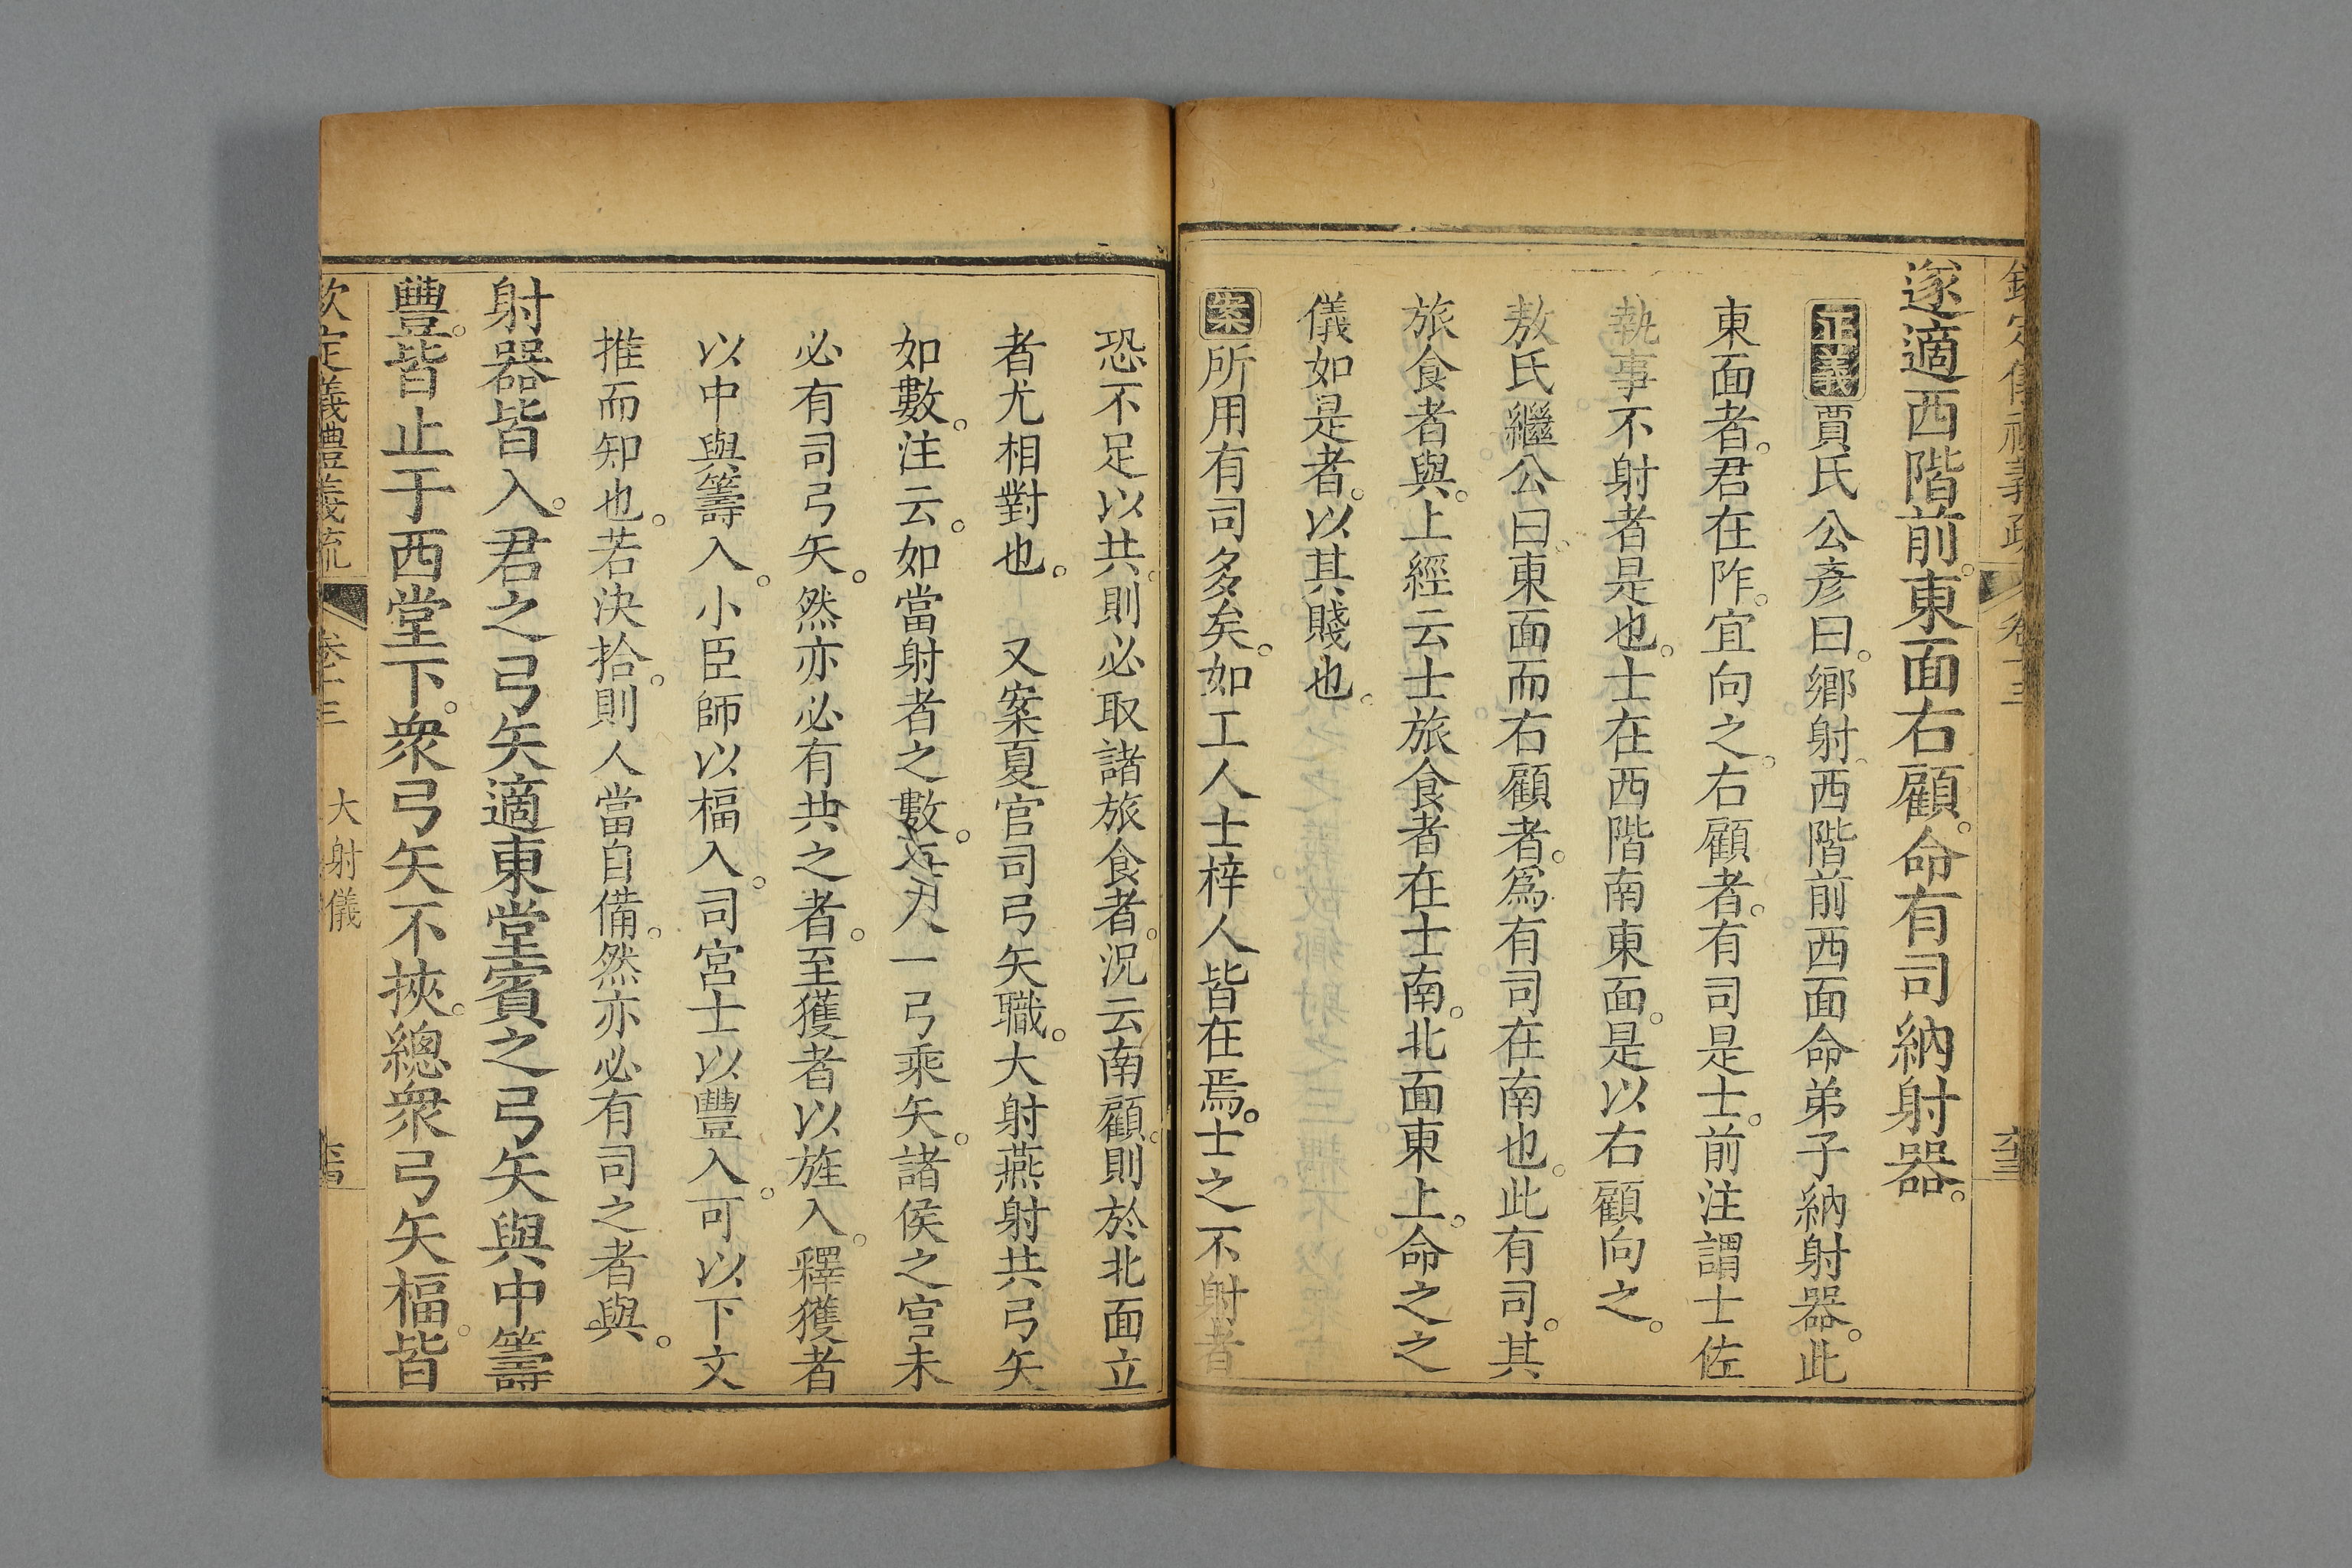 遂適西階前。東面右顧。命有司納射器。
正義賈氏公彥曰。鄉射。西階前西面命弟子納射器。此
東面者。君在阼。宜向之。右顧者。有司是士。前注謂士佐
執事不射者是也。士在西階南東面。是以右顧向之。
敖氏繼公曰。東面而右顧者。爲有司在南也。此有司。其
旅食者與。上經云士旅食者在士南。北面東上。命之之
儀如是者。以其賤也。
案所用有司多矣。如工人士梓人皆在焉。士之不射者
恐不足以共。則必取諸旅食者。況云南顧。則於北面立
者尤相對也。 又案夏官司弓矢職。大射燕射共弓矢
如數。注云。如當射者之數。每人一弓乘矢。諸侯之官未
必有司弓矢。然亦必有共之者。至獲者以旌入。釋獲者
以中與籌入。小臣師以楅入。司宮士以豐入。可以下文
推而知也。若決拾。則人當自備。然亦必有司之者與。
射器皆入。君之弓矢適東堂賓之弓矢與中籌
豐。皆止于西堂下。衆弓矢不挾。總衆弓矢楅。皆
欽定儀禮義疏 卷十三 大射儀